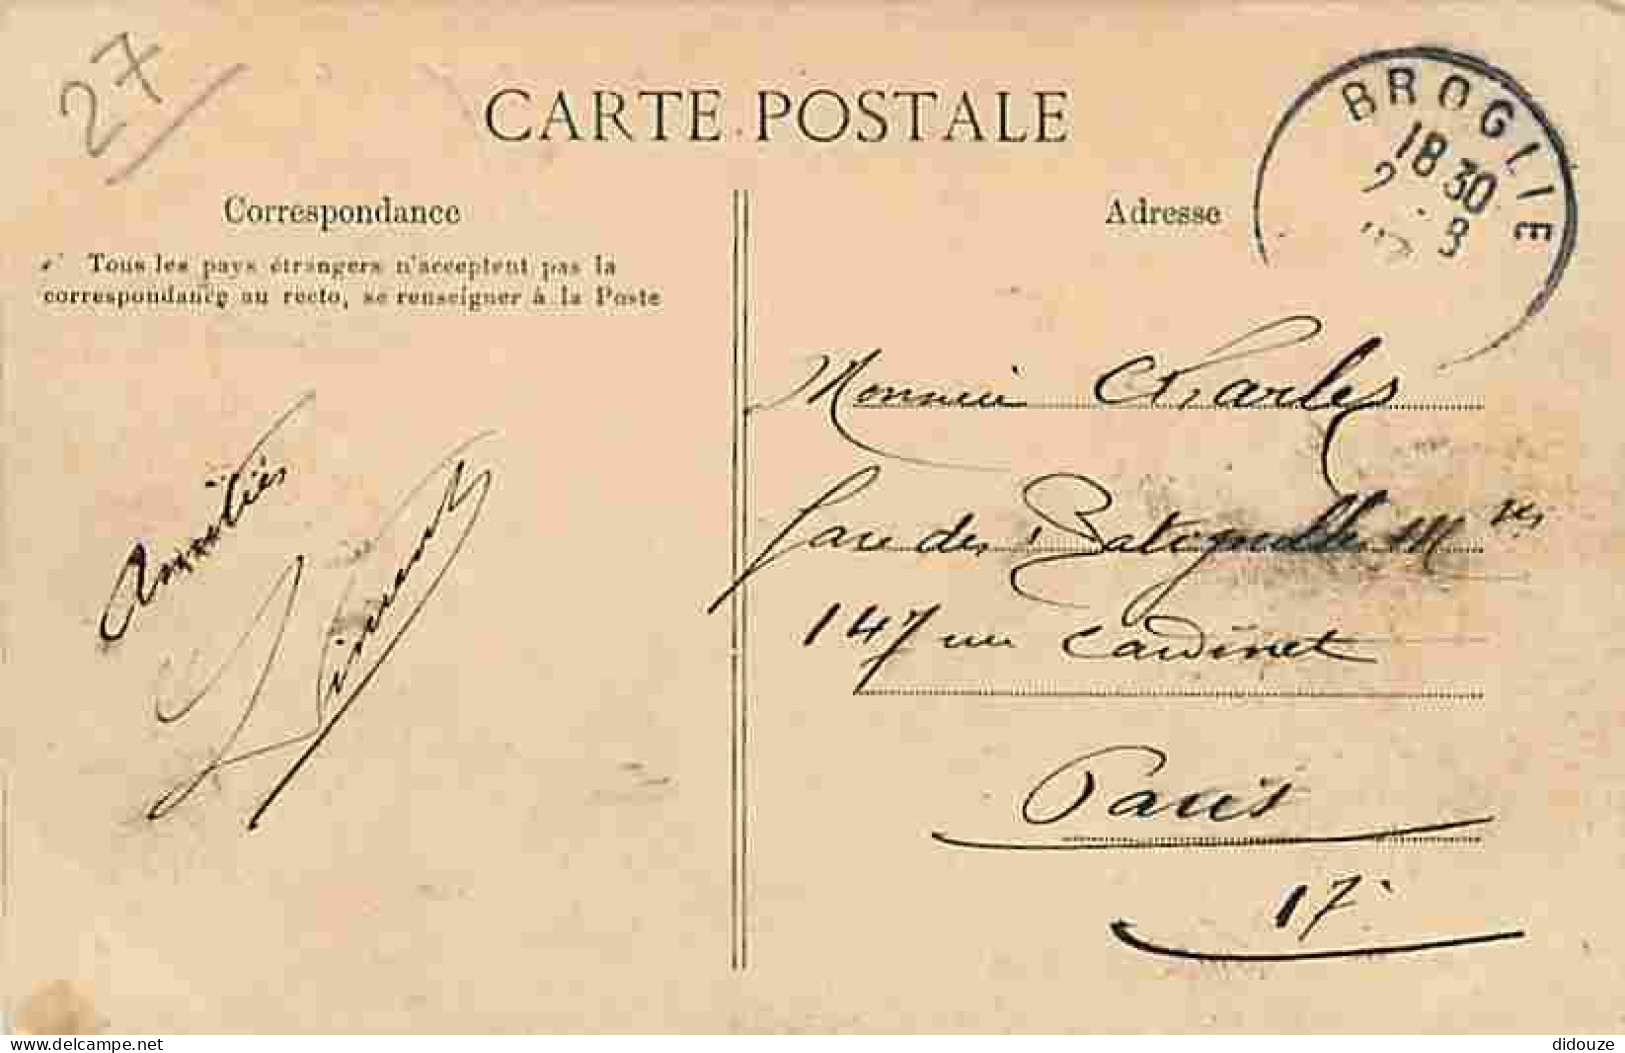 27
CARTE POSTALE
BROGLIE
18 30
2 8
Correspondance
Adresse
Tous les pays étrangers n'acceptent pas la
correspondance au recto, se renseigner à la Poste
Amitiés
Monsieur Charles
Gare des Batignolles Mses
147 rue Cardinet
Paris
17
delcampe.net
didouze